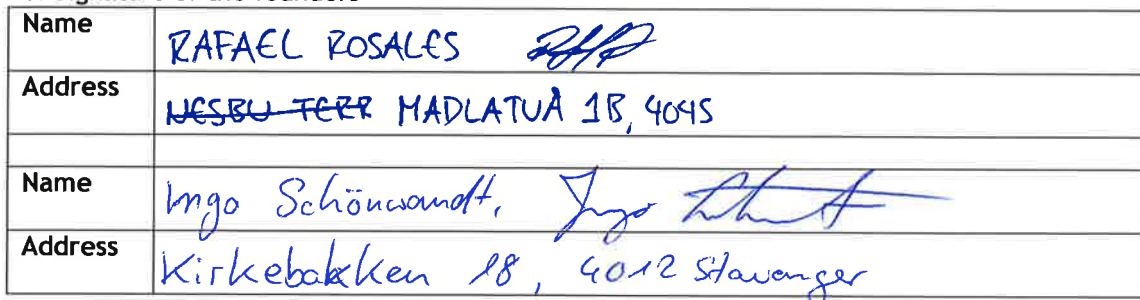 Signature of the founders
Name RAFAEL ROSALES
Address NESBU TERR MADLATUÅ 1B, 4045
Name Ingo Schönwandt, Ingo
Address Kirkebakken 18, 4012 Stavanger